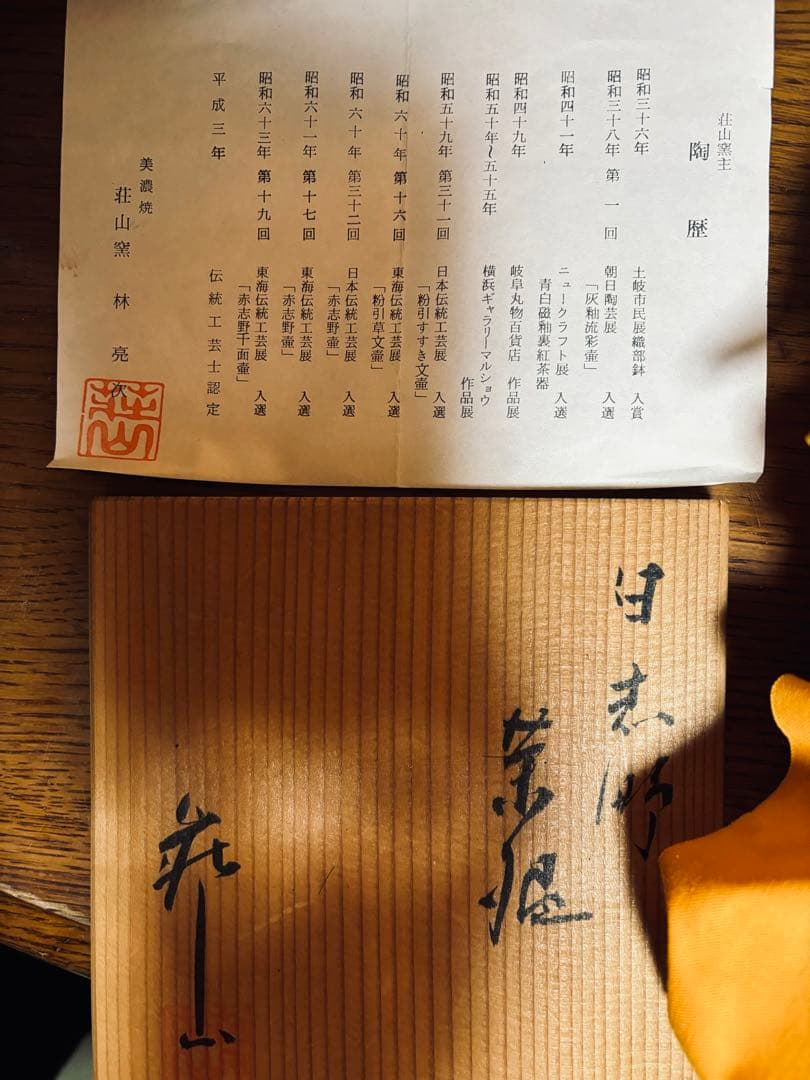 荘山窯主
陶歴
昭和三十六年 土岐市民展織部鉢 入賞
昭和三十八年 第一回 朝日陶芸展 入選
「灰釉流彩壷」
昭和四十一年 ニュークラフト展 入選
青白磁釉裏紅茶器
昭和四十九年 岐阜丸物百貨店 作品展
昭和五十年〜五十五年 横浜ギャラリーマルショウ
作品展
昭和五十九年 第三十一回 日本伝統工芸展 入選
「粉引すすき文壷」
昭和六十年 第十六回 東海伝統工芸展 入選
「粉引草文壷」
昭和六十年 第三十二回 日本伝統工芸展 入選
「赤志野壷」
昭和六十一年 第十七回 東海伝統工芸展 入選
「赤志野壷」
昭和六十三年 第十九回 東海伝統工芸展 入選
「赤志野千面壷」
平成三年 伝統工芸士認定
美濃焼
荘山窯 林亮次
志野
茶碗
荘山